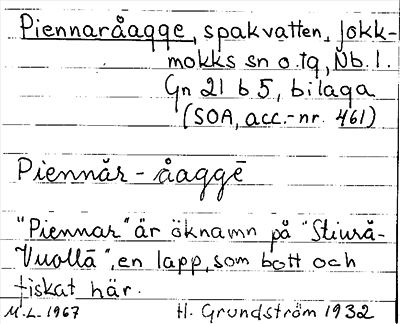 Piennaråagge, spakvatten, Jokk-
mokks sn o. tg, Nb. l.
Gn 21 b 5, bilaga
(SOA, acc.-nr. 461)
Piennăr - åaggē
"Piennar" är öknamn på "Stiură-
Vuollā", en lapp, som bott och
fiskat här.
M.L. 1967 H. Grundström 1932